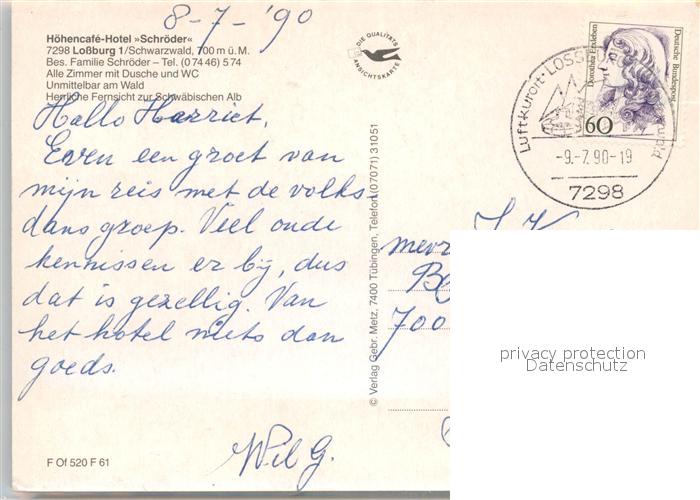 8-7-'90
Höhencafé-Hotel »Schröder«
7298 Loßburg 1/Schwarzwald, 700 m ü. M.
Bes. Familie Schröder – Tel. (0 74 46) 5 74
Alle Zimmer mit Dusche und WC
Unmittelbar am Wald
Herrliche Fernsicht zur Schwäbischen Alb
Hallo Harriet,
Even een groet van
mijn reis met de volks
dans groep. Veel oude
kennissen er bij, dus
dat is gezellig. Van
het hotel niets dan
goeds.
Wil G.
F Of 520 F 61
DIE QUALITÄTS
ANSICHTSKARTE
© Verlag Gebr. Metz, 7400 Tübingen, Telefon (07071) 31051
Dorothea Erxleben
Deutsche Bundespost
60
Luftkurort · LOSS
-9.-7.90-19
7298
mevr
700
privacy protection
Datenschutz